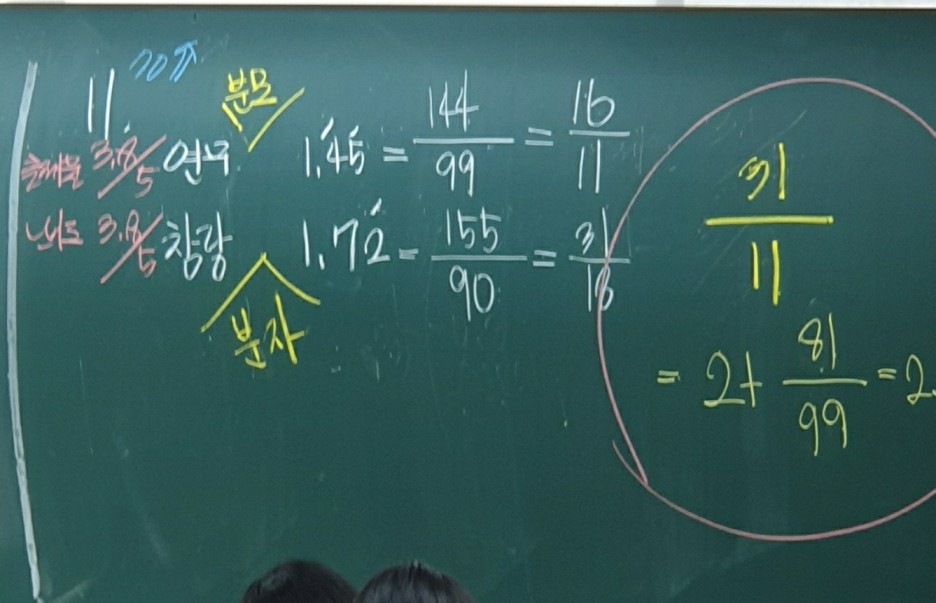 11
분모
3.8/5 연우 1.4̇5̇ = 144/99 = 16/11
난이도 3.8/5 창랑 1.72̇ = 155/90 = 31/18
분자
31/11
= 2+ 81/99 = 2.